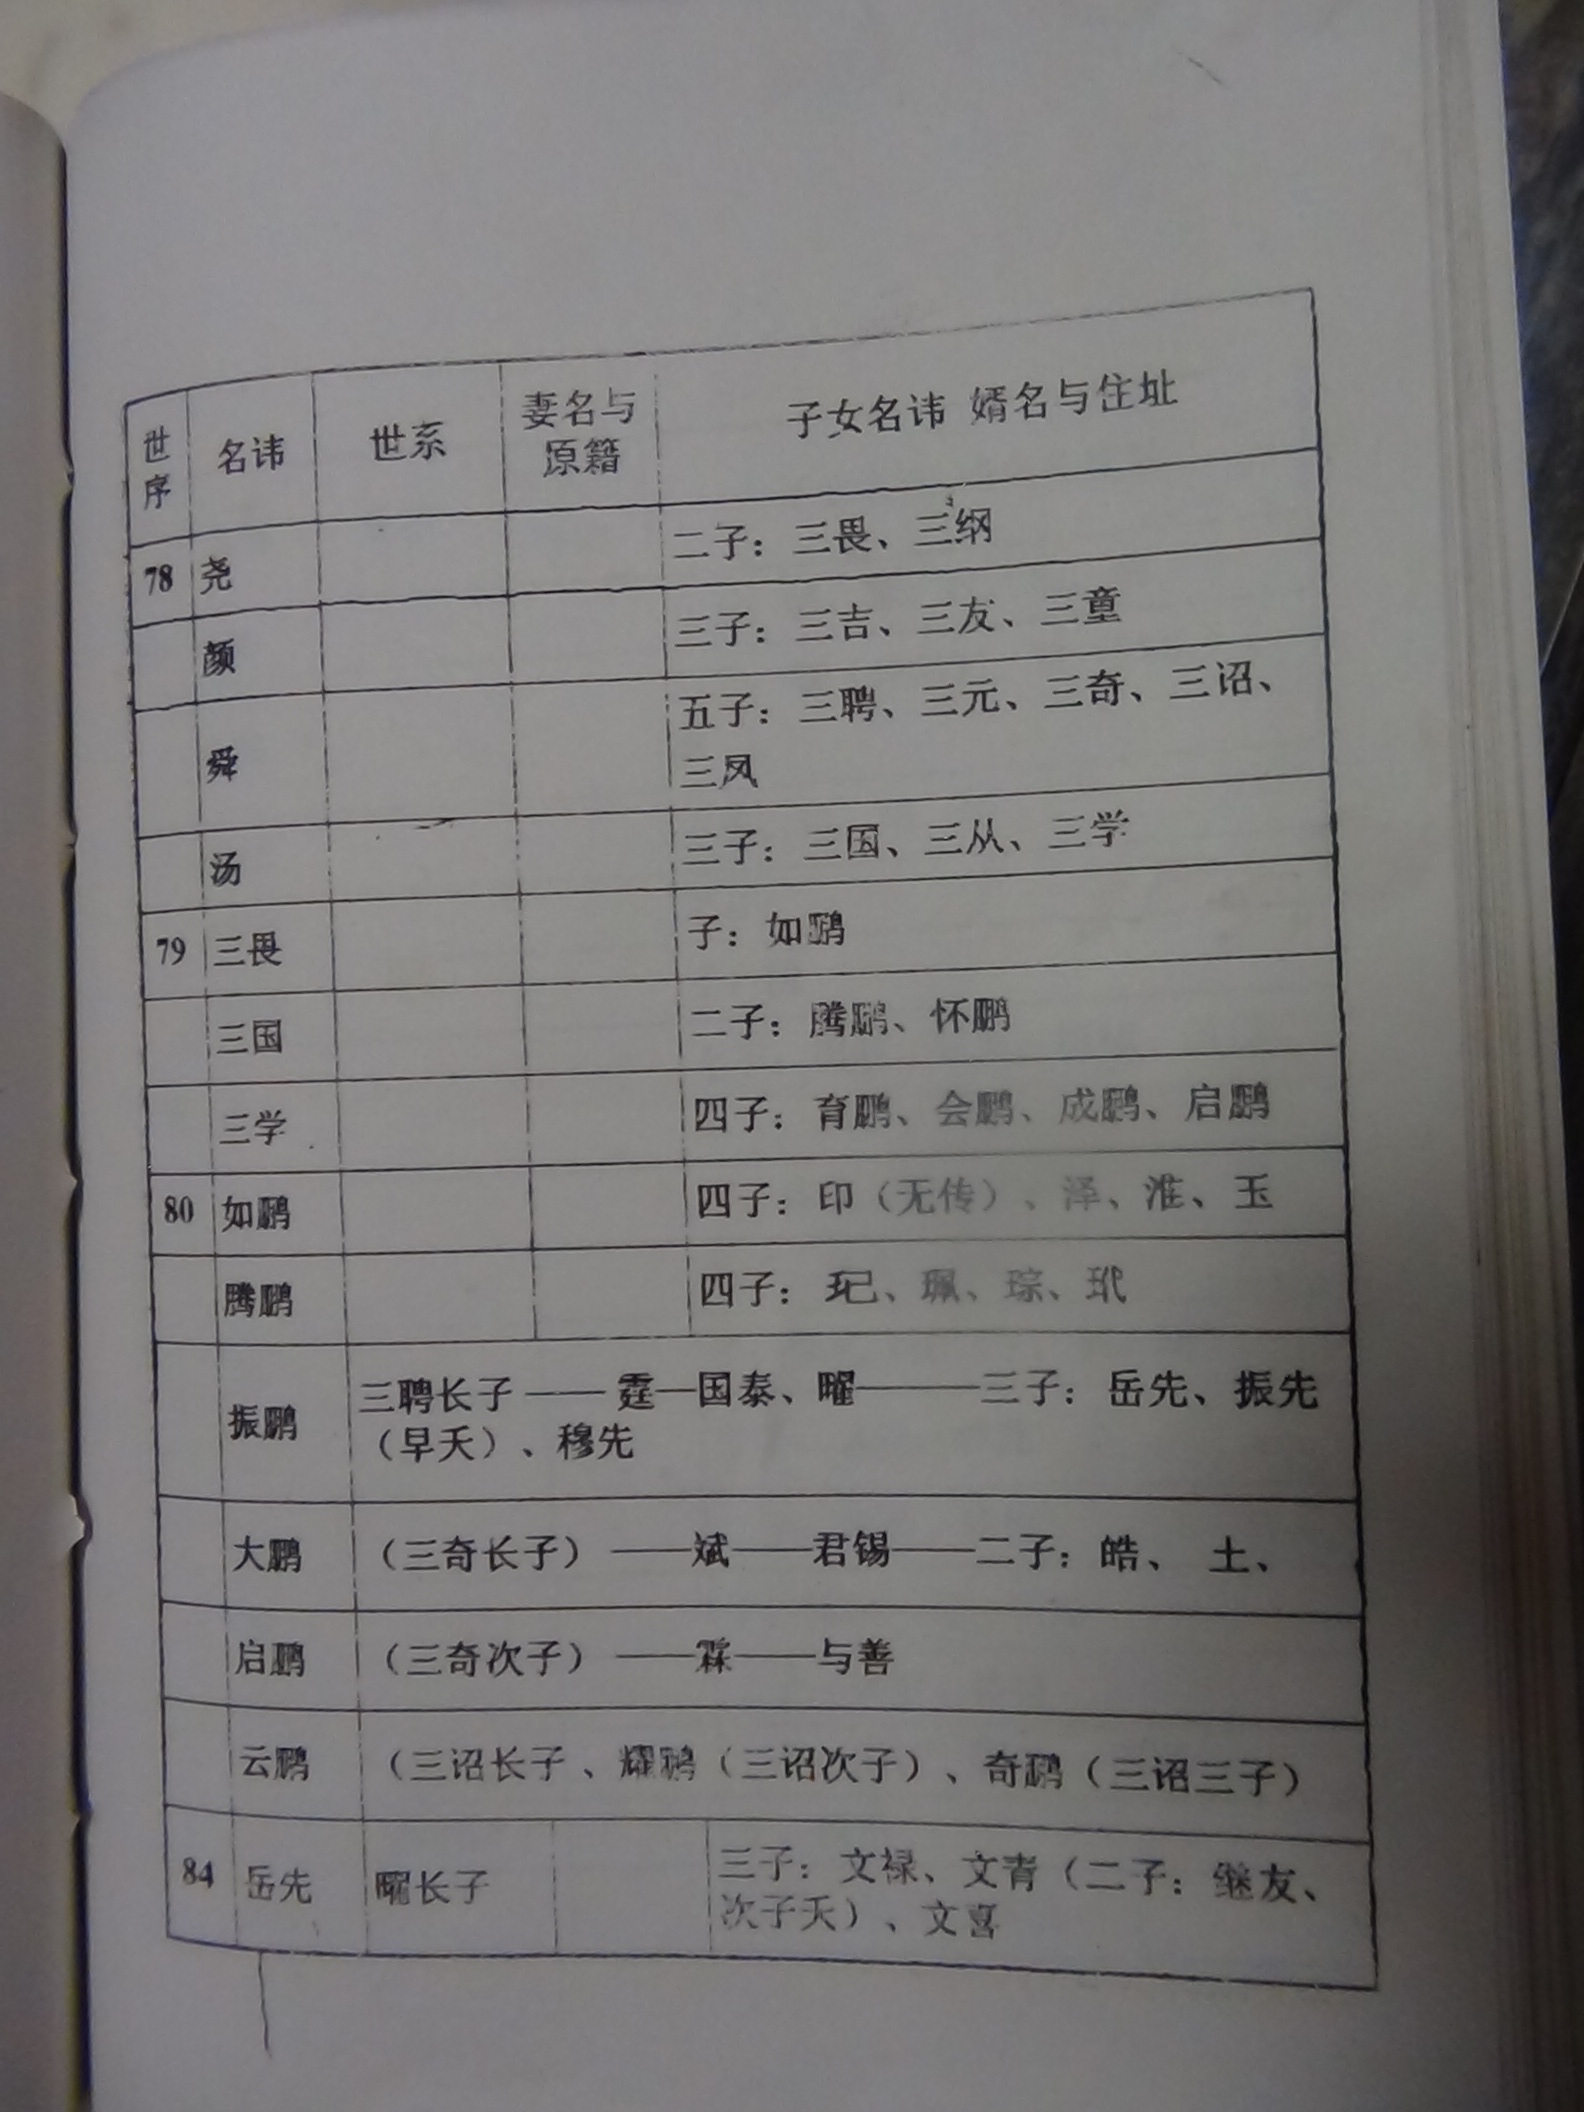 世序 名讳 世系 妻名与原籍 子女名讳 婿名与住址
78 尧 二子：三畏、三纲
颜 三子：三吉、三友、三童
舜 五子：三聘、三元、三奇、三诏、
三凤
汤 三子：三国、三从、三学
79 三畏 子：如鹏
三国 二子：腾鹏、怀鹏
三学 四子：育鹏、会鹏、成鹏、启鹏
80 如鹏 四子：印（无传）、泽、淮、玉
腾鹏 四子：玘、珮、琮、玳
振鹏 三聘长子——霆—国泰、曜———三子：岳先、振先
（早夭）、穆先
大鹏 （三奇长子）——斌——君锡——二子：皓、土、
启鹏 （三奇次子）——霖——与善
云鹏 （三诏长子、耀鹏（三诏次子）、奇鹏（三诏三子）
84 岳先 曜长子 三子：文禄、文青（二子：继友、
次子夭）、文喜